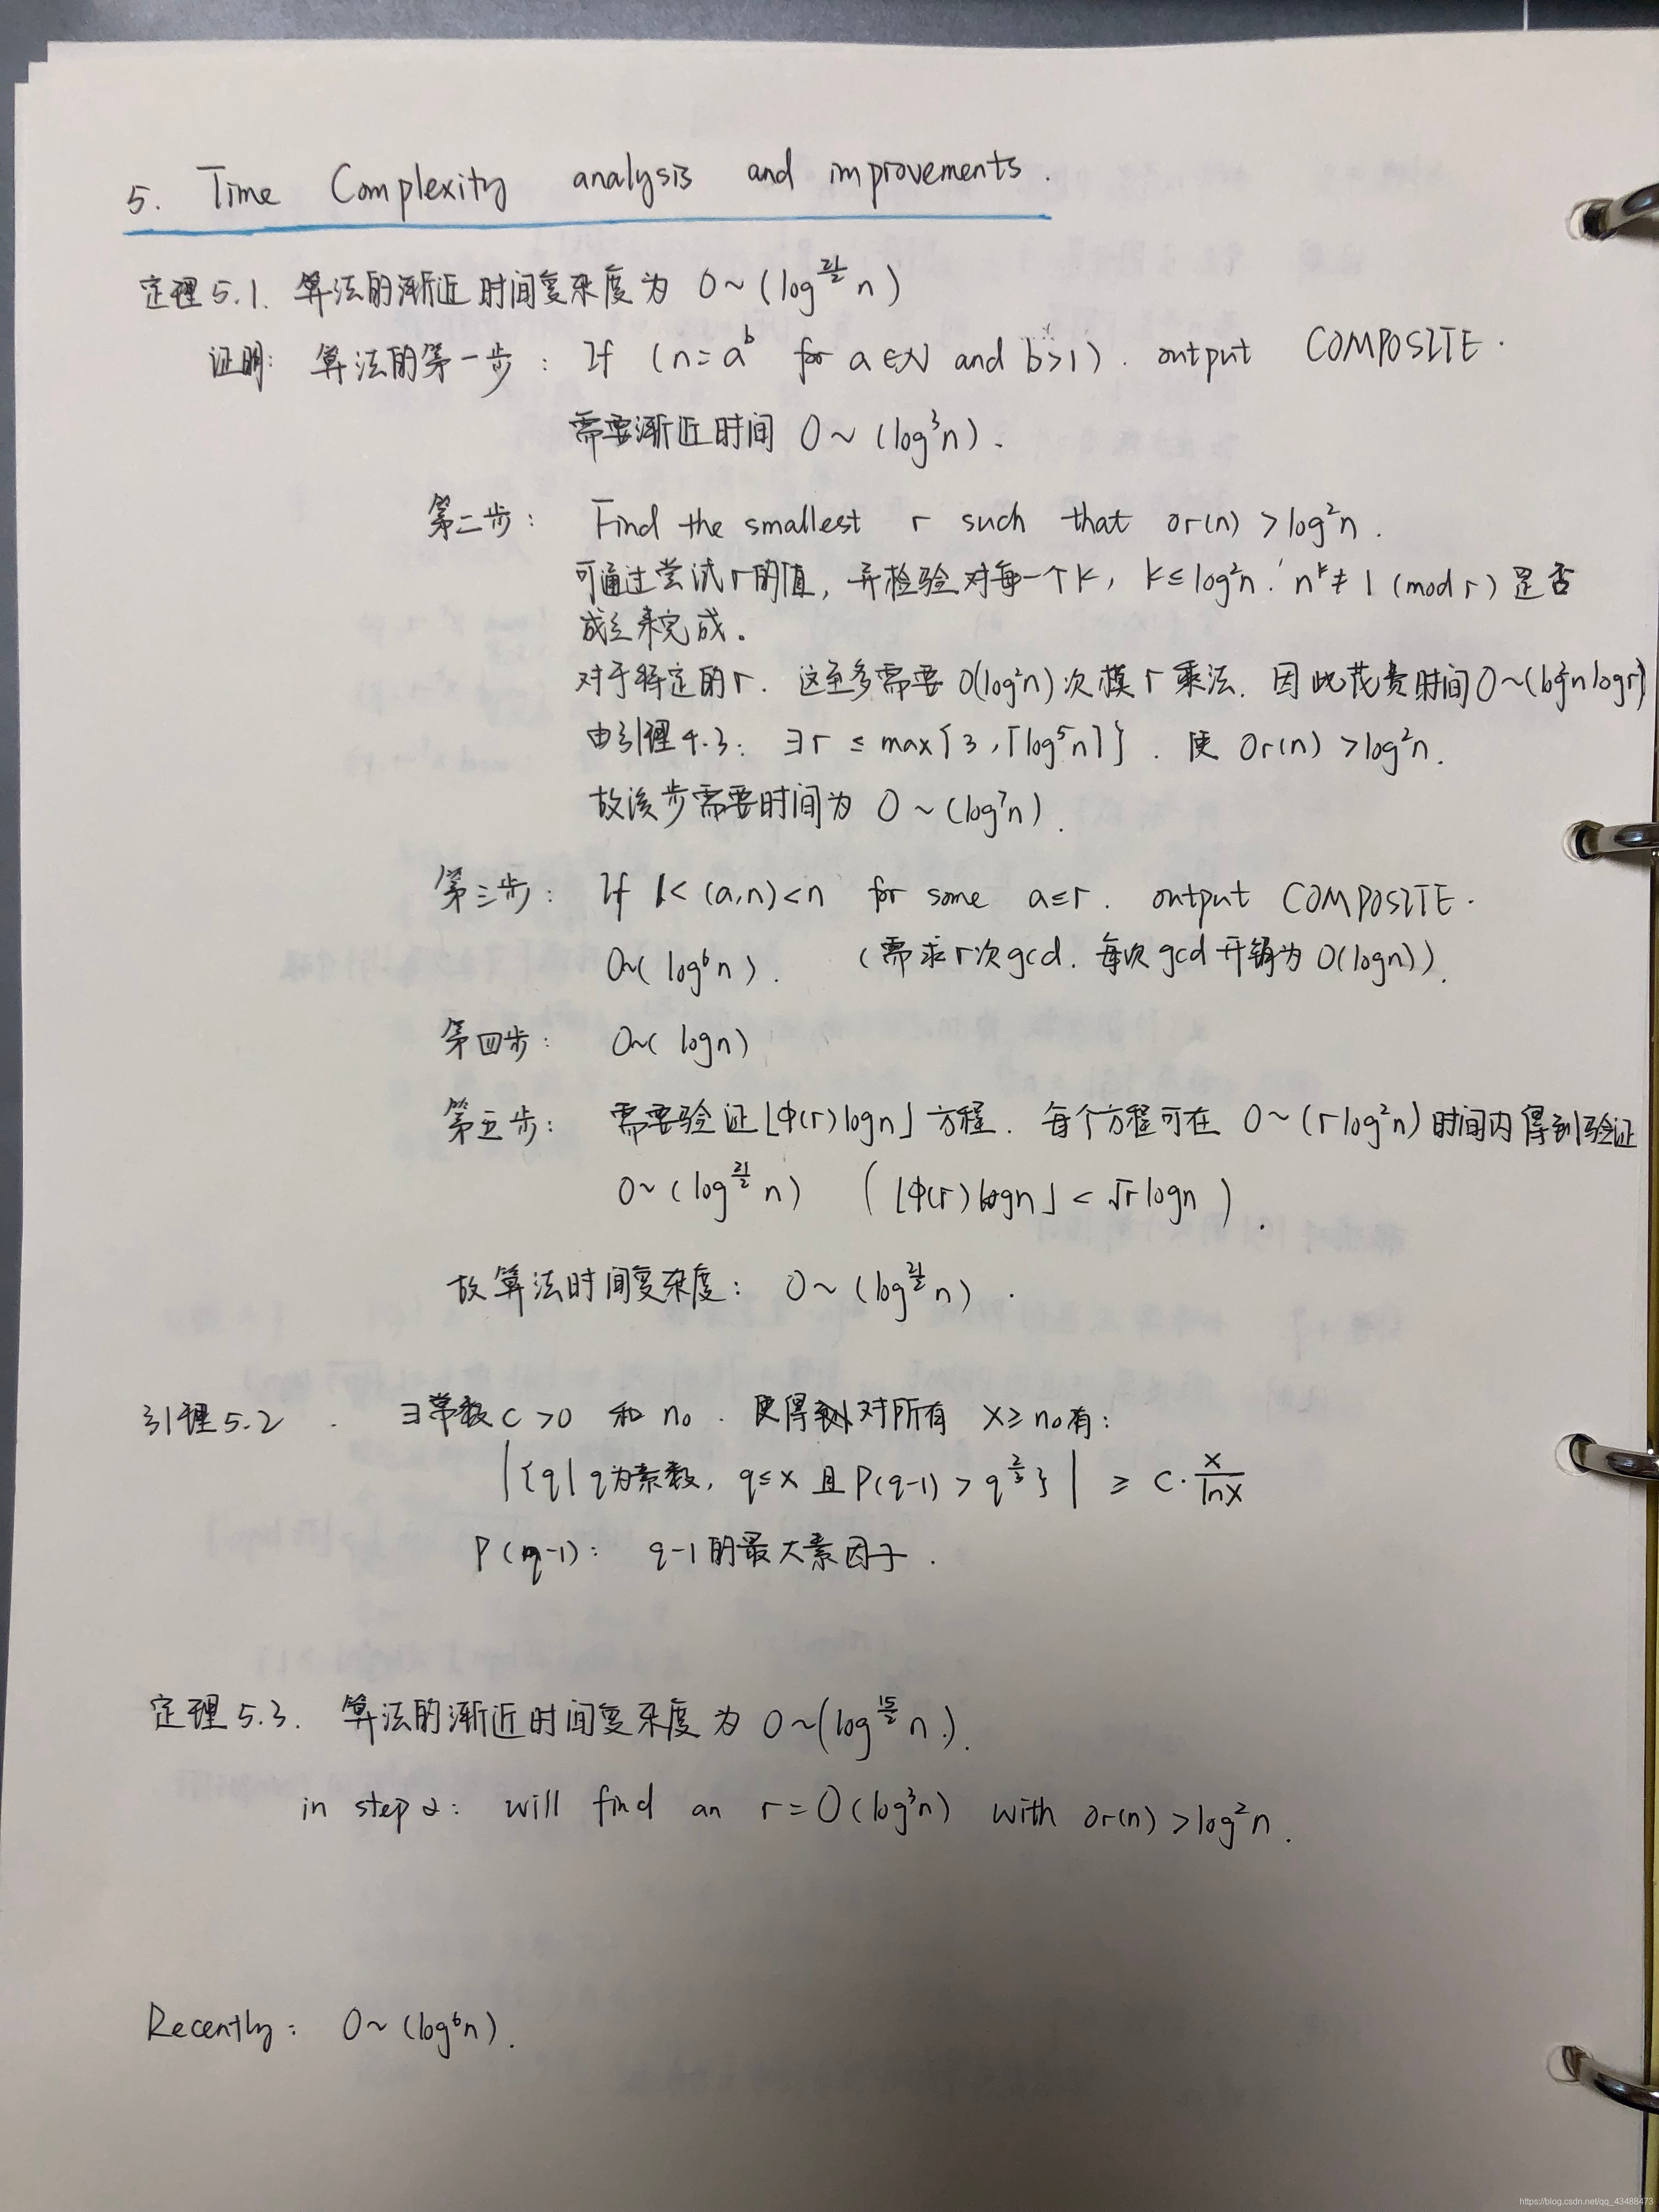 5. Time Complexity analysis and improvements.
定理5.1. 算法的渐近时间复杂度为 O~(log^{21/2} n)
证明: 算法的第一步: If (n=a^b for a∈N and b>1). output COMPOSITE.
需要渐近时间 O~(log³n).
第二步: Find the smallest r such that or(n) >log²n.
可通过尝试r的值, 并检验对每一个k, k≤log²n. n^k≠1 (mod r) 是否
成立来完成。
对于特定的r. 这至多需要O(log²n)次模r乘法. 因此花费时间O~(log²n logr)
由引理4.3: ∃r ≤ max{3,⌈log⁵n⌉}. 使 Or(n) >log²n.
故该步需要时间为 O~(log⁷n).
第三步: If 1<(a,n)<n for some a≤r. output COMPOSITE.
O~(log⁶n). (需求r次gcd. 每次gcd开销为O(logn)).
第四步: O~(logn)
第五步: 需要验证⌊Φ(r)logn⌋方程. 每个方程可在 O~(rlog²n)时间内得到验证
O~(log^{21/2} n) (⌊Φ(r)logn⌋ < √r logn).
故算法时间复杂度: O~(log^{21/2} n).
引理5.2. ∃常数c>0 和 n₀. 使得对所有 x≥n₀有:
|{q|q为素数, q≤x 且P(q-1)>q^{2/3}}| ≥ c·x/lnx
P(q-1): q-1的最大素因子.
定理5.3. 算法的渐近时间复杂度为 O~(log^{15/2} n.).
in step 2: will find an r=O(log³n) with or(n)>log²n.
Recently: O~(log⁶n).
https://blog.csdn.net/qq_43488473